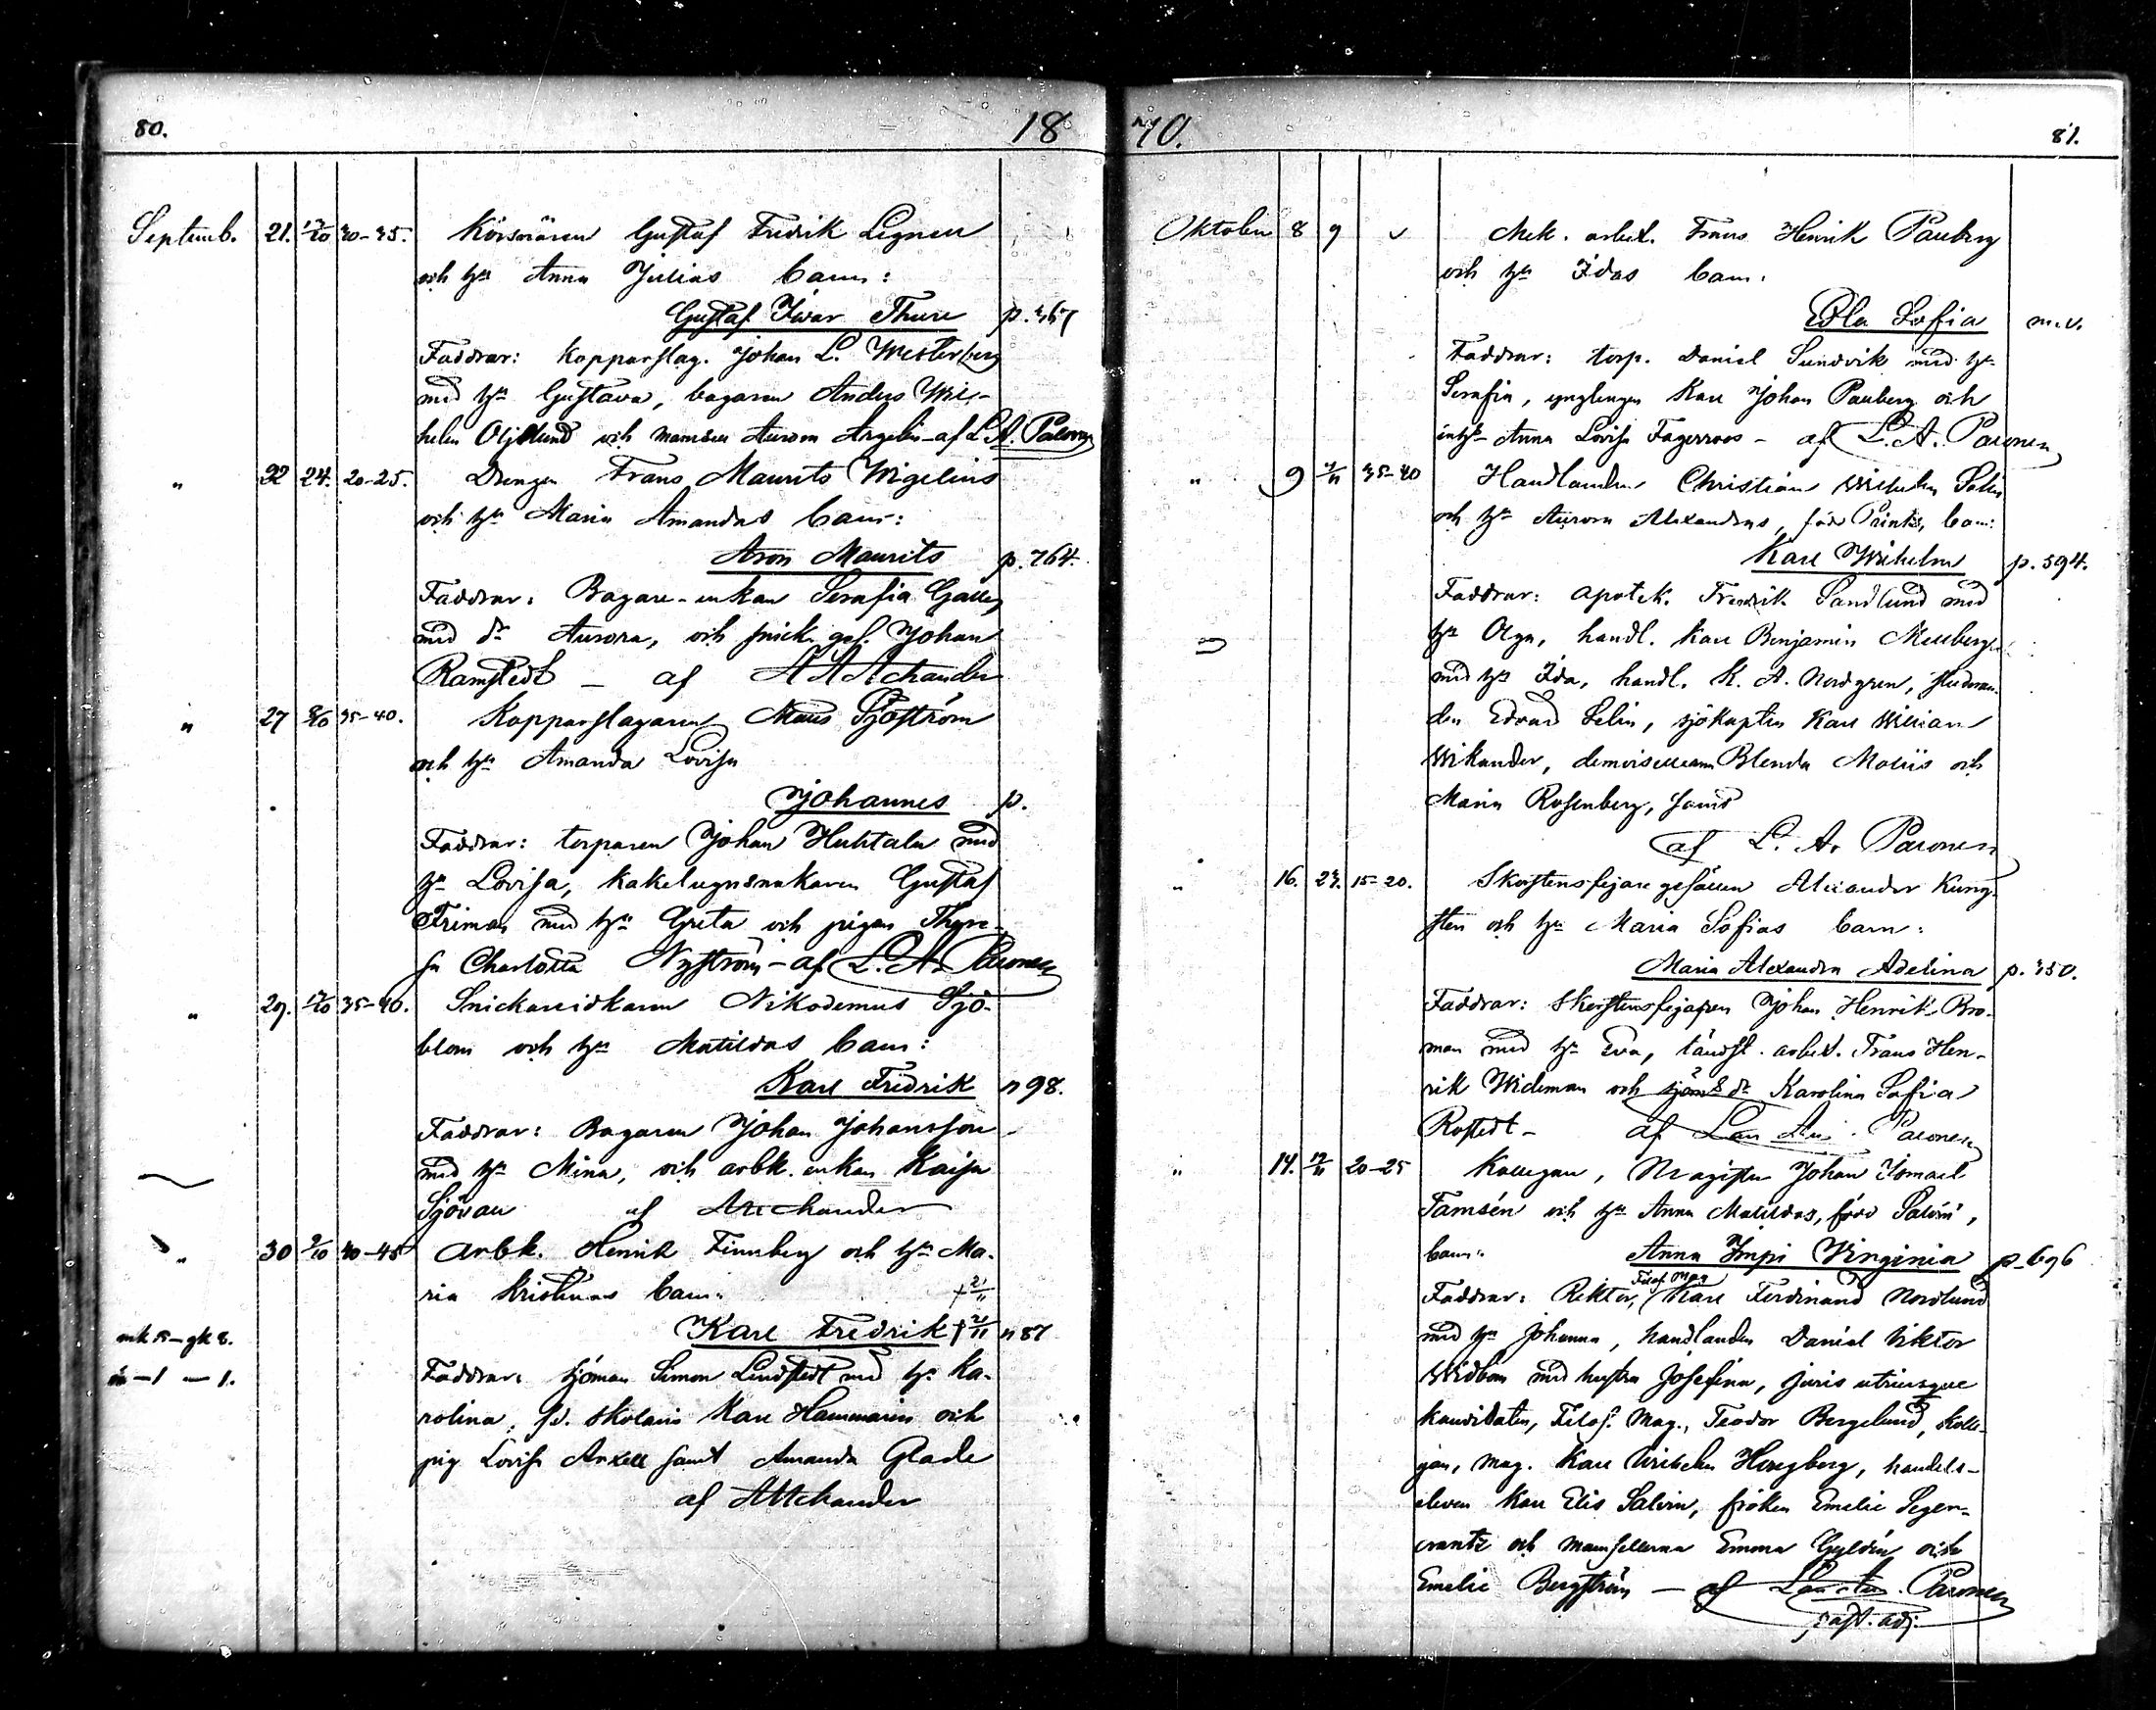 80. 18
Septemb. 21. 30-35. Körsvären Gustaf Fredrik Legnell
och h:u Anna Julias barn:
Gustaf Ivar Thure p. 367
Faddrar: Kopparslag. Johan L. Westerberg
med h:u Gustava, bagaren Anders Wil-
helm Oljelund och mamsell Aurora Argelin - af L. A. Paronen
" 22 24. 20-25. Drengen Frans Maurits Wigelius
och h:u Maria Amandas barn:
Aron Maurits p. 764.
Faddrar: Bagare-enkan Serafia
med d:r Aurora, och snick. ges. Johan
Ramstedt - af Achander
" 27 8/10 35-40. Kopparslagaren Maus Sjöström
och h:u Amanda Lovisa
Johannes p.
Faddrar: torparen Johan Huhtala med
h:u Lovisa, kakelugnsmakaren Gustaf
Friman med h:u Greta och pigan There-
sa Charlotta Nyström - af L. A. Paronen
" 29. 35-40. Snickareidkaren Nikodemus Sjö-
blom och h:u Matildas barn:
Karl Fredrik n 98.
Faddrar: Bagaren Johan Johansson
med h:u Mina, och arbk. enkan Kaisa
Sjövall af Achander
" 30 9/10 40-45 Arbk. Henrik Finnberg och h:u Ma-
ria Kristinas barn: + 2/11
Karl Fredrik + 2/11 n 87
mk 15 - gk 8.
- 1 - 1.
Faddrar: sjöman Simon Lindstedt med h:u Ka-
rolina, fd. skolaris Karl Hammarin och
pig Lovisa Axell samt Amanda Glade
af Achander
70. 81.
Oktober 8 9 v Mek. arbet. Frans Henrik Pauberg
och h:u Idas barn:
Edla Sofia m.v.
Faddrar: torp. Daniel Sundvik med h:u
Serafia, ynglingen Karl Johan Pauberg och
Anna Lovisa Fagerroos - af L. A. Paronen
" 9 35-40 Handlanden Christian Wilhelm Selin
och h:u Aurora Alexandras, född Printz, barn:
Karl Wilhelm p. 594.
Faddrar: apotek. Fredrik Sandlund med
h:u Olga, handl. Karl Benjamin Mellberg
med h:u Ida, handl. K. A. Nordgren, studeran-
den Edvard Selin, sjökapten Karl William
Wikander, demoisellerna Blenda Moliis och
Maria Rosenberg, samt
af L. A. Paronen
" 16. 23. 15-20. Skorstensfejare gesällen Alexander Kung-
sten och h:u Maria Sofias barn:
Maria Alexandra Adelina p. 350.
Faddrar: Skorstensfejaren Johan Henrik Bro-
man med h:u Eva, tändst. arbet. Frans Hen-
rik Wideman och d:r Karolina Sofia
Rostedt - af Lau. Au. Paronen
" 14. 20-25 Kollegan, Magister Johan Ismael
Tamsén och h:u Anna Matildas, född Salvin,
barn: Anna Impi Virginia p. 696
Filos. Mag.
Faddrar: Rektor, Karl Ferdinand Nordlund
med h:u Johanna, handlanden Daniel Viktor
Widbom med hustru Josefina, juris utriusque
kandidaten, Filos. Mag., Teodor Bergelund, Kolle-
gan, mag. Karl Wilhelm Hougberg, handels-
eleven Karl Elis Salvin, fröken Emelie Seger-
crantz och mamsellerna Emma Gyldén och
Emelie Bergström - af Lau. Au. Paronen
past. adj.